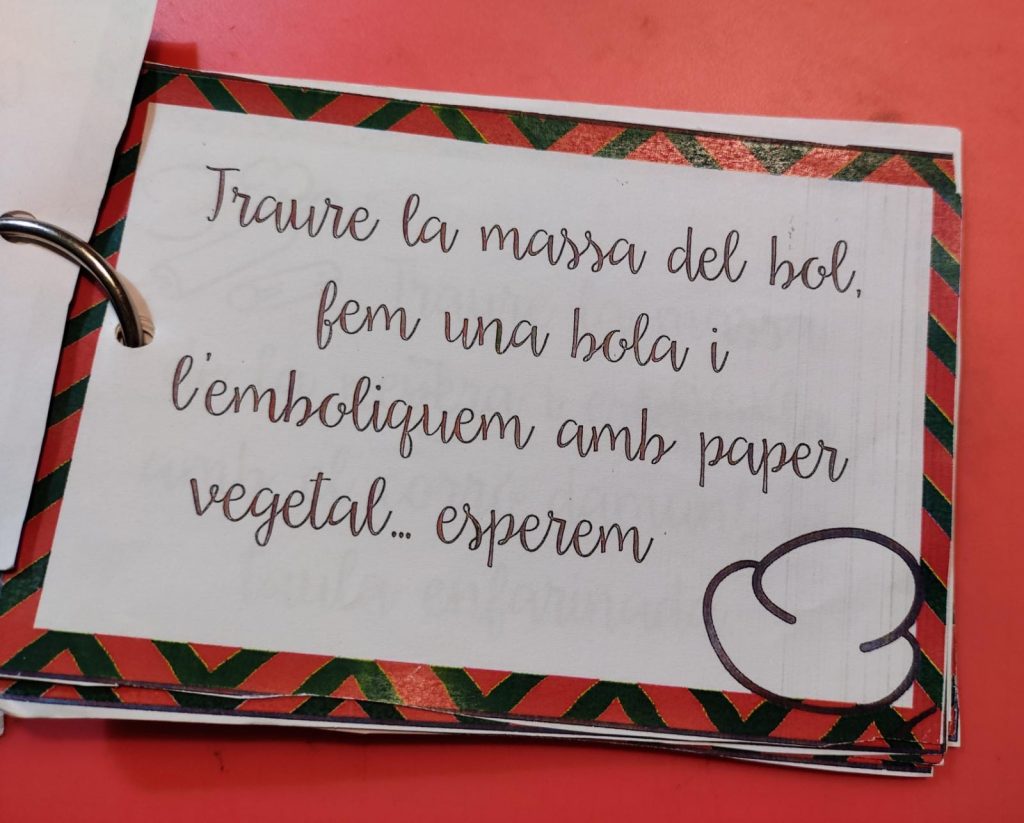 Traure la massa del bol,
fem una bola i
l'emboliquem amb paper
vegetal... esperem